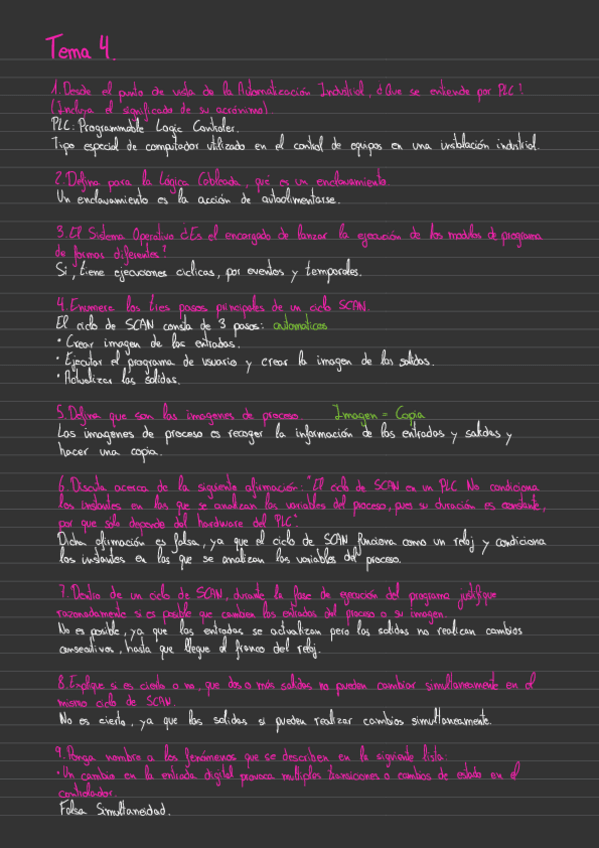 Tema 4.
1. Desde el punto de vista de la Automatización Industrial, ¿Que se entiende por PLC?
(Incluya el significado de su acrónimo).
PLC: Programmable Logic Controler.
Tipo especial de computador utilizado en el control de equipos en una instalación industrial.
2. Defina para la Lógica Cableada, qué es un enclavamiento.
Un enclavamiento es la acción de autoalimentarse.
3. El Sistema Operativo ¿Es el encargado de lanzar la ejecución de los modulos de programa
de formas diferentes?
Si, tiene ejecuciones ciclicas, por eventos y temporales.
4. Enumere los tres pasos principales de un ciclo SCAN.
El ciclo de SCAN consta de 3 pasos: automaticos
• Crear imagen de las entradas.
• Ejecutar el programa de usuario y crear la imagen de las salidas.
• Actualizar las salidas.
5. Defina que son las imagenes de proceso. Imagen = Copia
Las imagenes de proceso es recoger la información de las entradas y salidas y
hacer una copia.
6. Discuta acerca de la siguiente afirmación: "El ciclo de SCAN en un PLC No condiciona
los instantes en los que se analizan las variables del proceso, pues su duración es constante,
por que sólo depende del hardware del PLC".
Dicha afirmación es falsa, ya que el ciclo de SCAN funciona como un reloj y condiciona
los instantes en los que se analizan las variables del proceso.
7. Dentro de un ciclo de SCAN, durante la fase de ejecución del programa justifique
razonadamente si es posible que cambien las entradas del proceso a su imagen.
No es posible, ya que las entradas se actualizan pero las salidas no realizan cambios
consecutivos, hasta que llegue el franco del reloj.
8. Explique si es cierto o no, que dos o más salidas no pueden cambiar simultaneamente en el
mismo ciclo de SCAN.
No es cierto, ya que las salidas si pueden realizar cambios simultaneamente.
9. Ponga nombre a los fenómenos que se describen en la siguiente lista:
• Un cambio en la entrada digital provoca multiples transiciones o cambios de estado en el
controlador.
Falsa Simultaneidad.